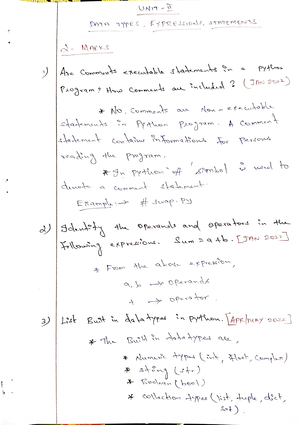 UNIT-II
DATA TYPES, EXPRESSIONS, STATEMENTS
2-MARKS
1) Are Comments executable statements in a python
Program? How comments are included? (JAN 2022)
* No. Comments are non-executable
statements in Python Program. A comment
statement contains informations for persons
reading the program.
* In python '#' symbol is used to
denote a comment statement.
Example → # swap.py
2) Identify the operands and operators in the
following expressions. Sum = a+b. [JAN 2022]
* From the above expression,
a, b → operands
+ → operator.
3) List Built in datatypes in python. [APR/MAY 2022]
* The Build in datatypes are,
* Numeric types (int, float, complex)
* string (str)
* Boolean (bool)
* collection types (list, tuple, dict,
set).